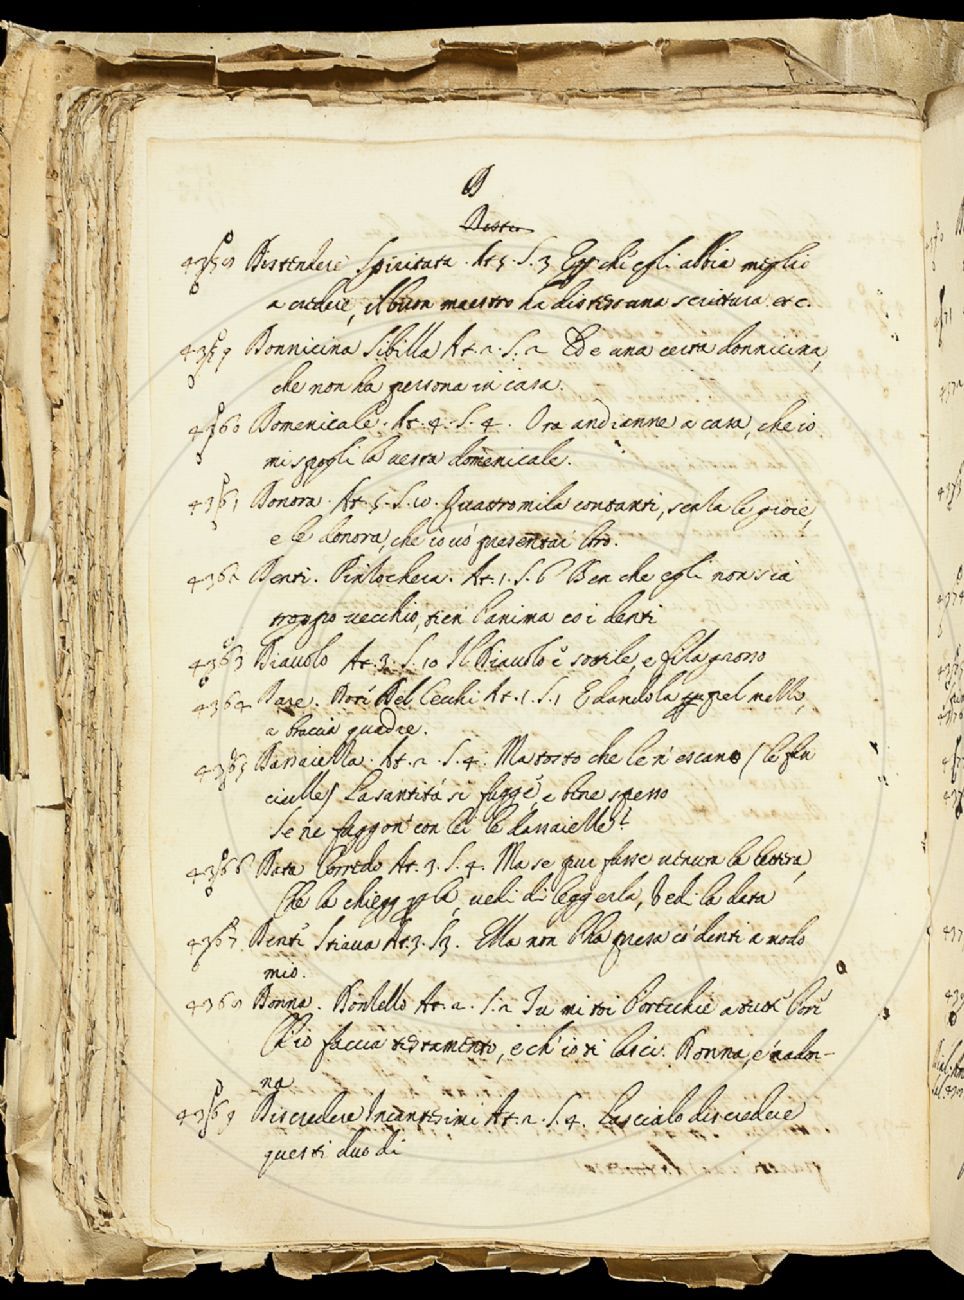 D
4358 Distendere Spiritata. At. 5. S. 3 Egli ch'egli abbia meglio
a cadere, il buon maestro ha distesa una scrittura etc.
4359 Donnicina Sibilla At. 2. S. 2 Ed e una certa donnicina,
che non ha persona in casa.
4360 Domenicale. At. 4. S. 4. Ora andianne a casa, che io
mi spogli la vesta domenicale.
4361 Donora. At. 5. S. 10. Quattromila contanti, senza le gioie,
e le donora, che io vó presentar loro.
4362 Denti. Pinlochera. At. 1. S. 6 Ben che egli non sia
troppo vecchio, tien l'anima co i denti
4363 Diavolo At. 3. S. 10 Il Diavolo é sottile, e fila grosso
4364 Dare. Doti Del Cecchi At. 1. S. 1 E dandola pel mello,
a braccia quadre.
4365 Dassaiella. At. 2. S. 4. Ma tosto che le n'escano (le fan
ciulle) La santitá si fugge, e bene spesso
Se ne fuggon' con lei le dassaielle.
4366 Data Corredo At. 3. S. 4. Ma se pur fusse venuta la lettera,
Che la chieggola, vedi di leggerla, Vedi la data
4367 Denti Stiava At. 3. S. 3. Ella non l'ha presa co' denti a modo
mio.
4368 Donna. Donzello At. 2. S. 2 Tu mi toi l'orecchie a tutt' l'ori
Ch'io faccia testamento, e ch'io ti lasci. Donna, e mador-
na
4369 Discredere Incantesimi At. 2. S. 4. Lascialo discredere
questi duo di